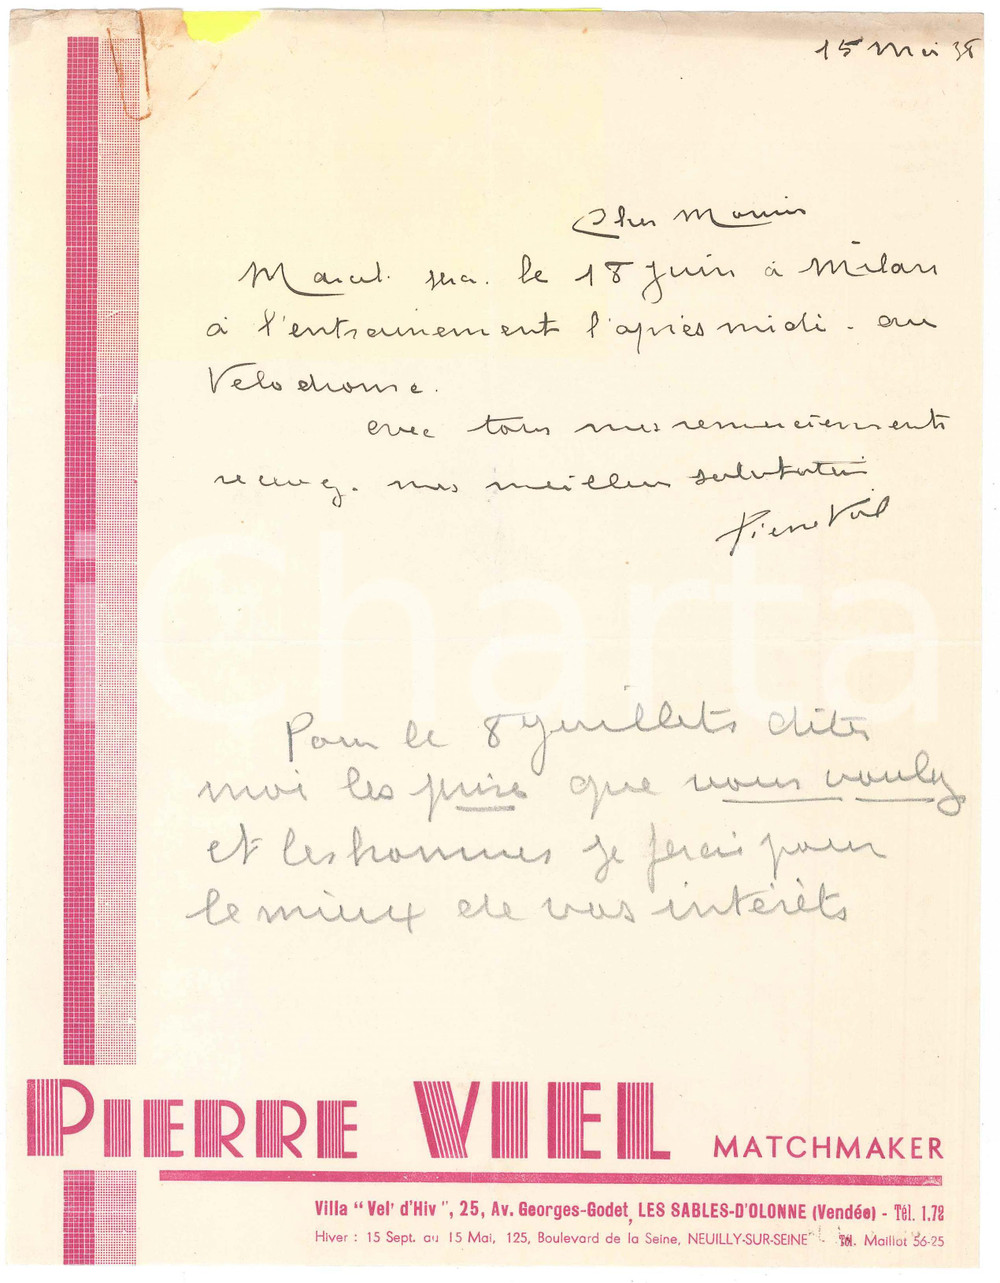 15 Mai 38
Cher
Marcel sera le 18 Juin à Milan
à l'entrainement l'après midi - au
Velodrome.
avec tous mes remerciements
recevez mes meilleurs salutations
Pierre Viel
Pour le 8 Juillets dites
moi les prixs que vous voulez
et les hommes je ferais pour
le mieux de vos intérêts
PIERRE VIEL MATCHMAKER
Villa “ Vel' d'Hiv ”, 25, Av. Georges-Godet, LES SABLES-D'OLONNE (Vendée) - Tél. 1.72
Hiver : 15 Sept. au 15 Mai, 125, Boulevard de la Seine, NEUILLY-SUR-SEINE Tél. Maillot 56-25
iCharta